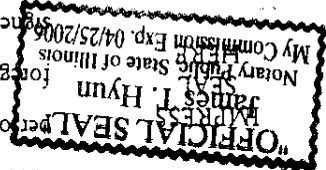 "OFFICIAL SEAL"
IMPRESS
James T. Hyun
SEAL
Notary Public, State of Illinois
HERE
My Commission Exp. 04/25/2006